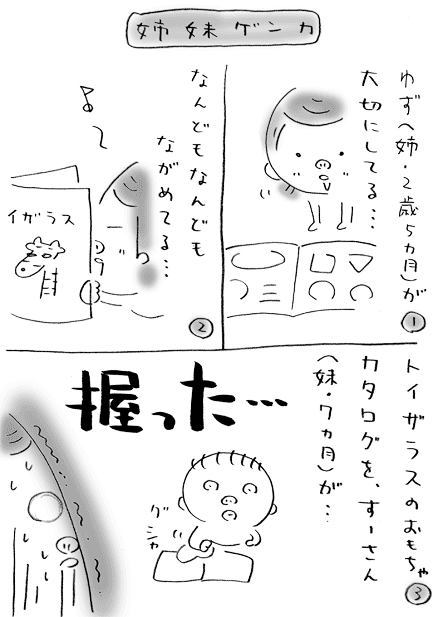 姉妹ゲンカ
ゆず(姉・2歳5ヵ月)が
大切にしてる…
1
なんどもなんども
ながめてる…
イザラス
2
トイザラスのおもちゃ
カタログを、すーさん
(妹・7ヵ月)が…
握った…
グシャ
3